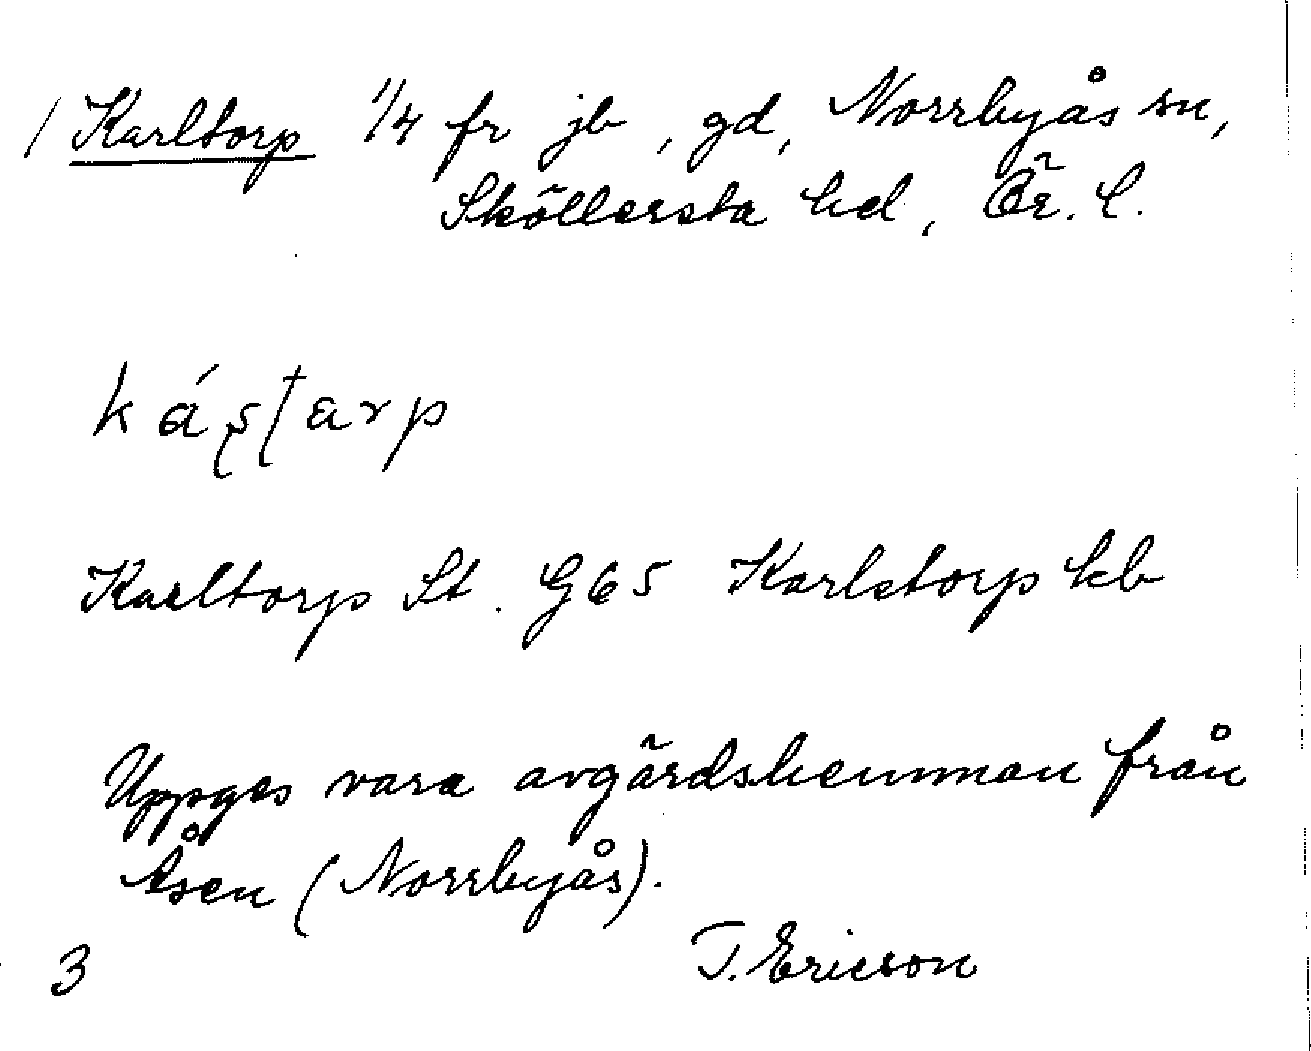 / Karltorp 1/4 fr jb, gd, Norrbyås sn,
Sköllersta hd, Ör. l.
káʂʈarp
Karltorp St. G65 Karlstorp kb
Uppges vara avgärdshemman från
Åsen (Norrbyås).
3 T. Ericson